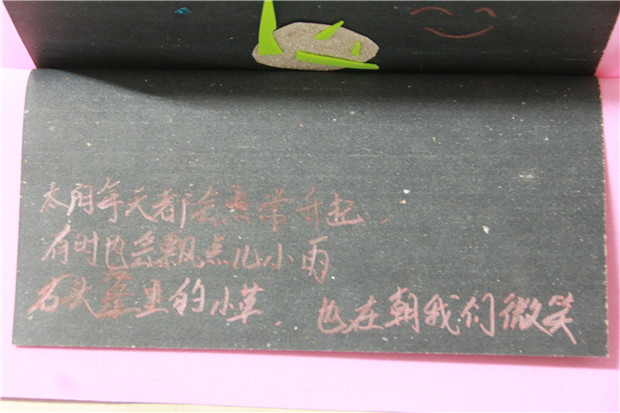 太阳每天都会照常升起.
有时也会飘点儿小雨
石头缝里的小草.也在朝我们微笑